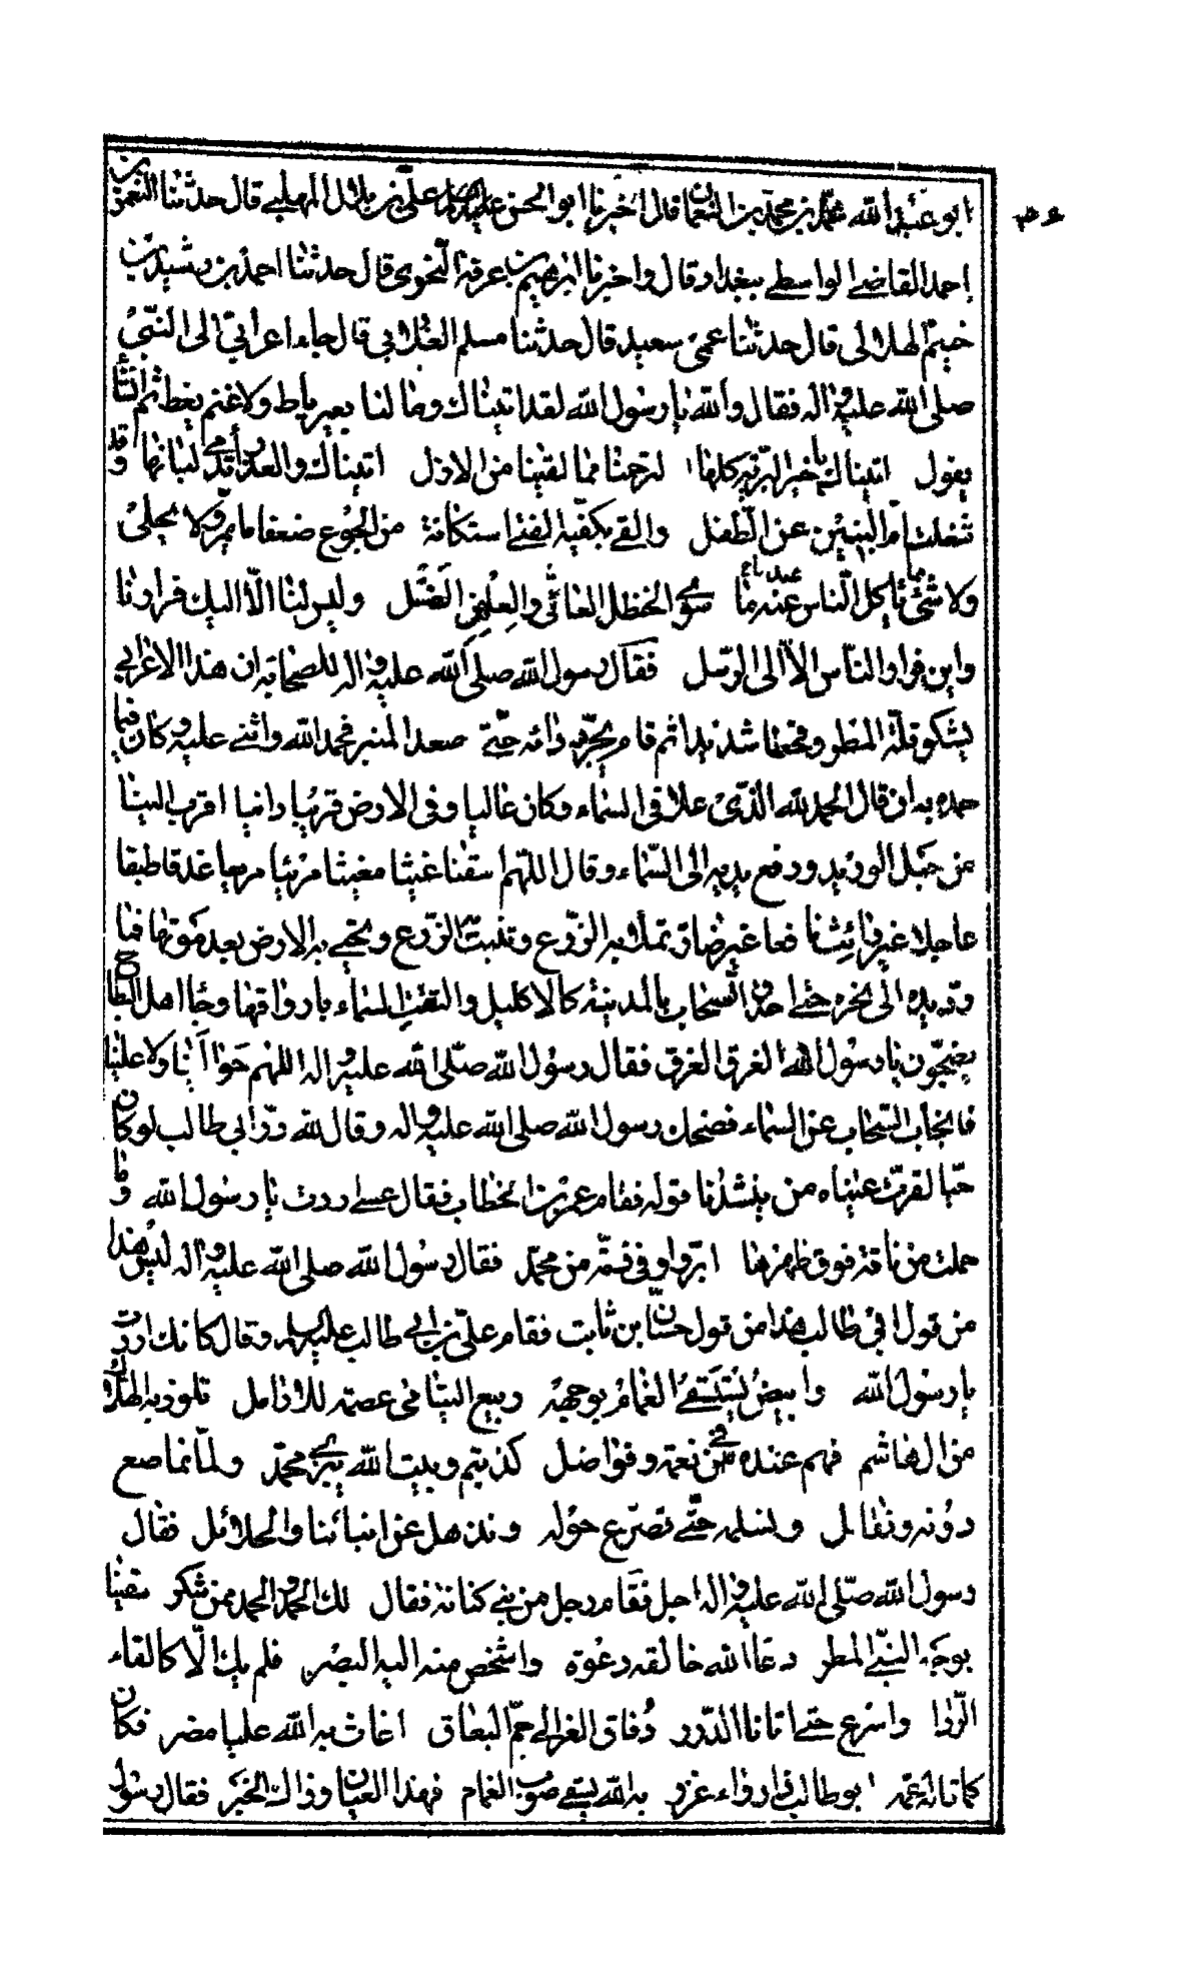 ابو عبد الله محمد بن محمد بن النعمان قال اخبرنا ابو الحسن علي بن بلال المهلبي قال حدثنا النعمن بن
احمد القاضي الواسطي ببغداد قال واخبرنا ابرهيم بن عرفة النحوي قال حدثنا احمد بن رشيد بن
خيثم الهلالي قال حدثنا عمي سعيد قال حدثنا مسلم الغلابي قال جاء اعرابي الى النبي
صلى الله عليه واله فقال والله يا رسول الله لقد اتيناك وما لنا بعير يأط ولا غنم يغط ثم انشأ
يقول اتيناك يا خير البرية كلها لترحمنا مما لقينا من الازل اتيناك والعذراء تدمي لبانها وقد
شغلت ام البنين عن الطفل والقى بكفيه الفتى استكانة من الجوع ضعفا ما يمر ولا يحلي
ولا شيء مما يأكل الناس عندنا سوى الحنظل العامي والعلهز الفسل وليس لنا الا اليك فرارنا
واين فرار الناس الا الى الرسل فقال رسول الله صلى الله عليه واله للصحابة ان هذا الاعرابي
يشكو قلة المطر وقحطا شديدا ثم قام يجر رداءه حتى صعد المنبر فحمد الله واثنى عليه وكان فيما
حمده به ان قال الحمد لله الذي علا في السماء وكان عاليا وفي الارض قريبا دانيا اقرب الينا
من حبل الوريد ورفع يديه الى السماء وقال اللهم اسقنا غيثا مغيثا مريئا مريعا غدقا طبقا
عاجلا غير رائث نافعا غير ضار تملأ به الزرع وتنبت الزرع وتحيي به الارض بعد موتها فما
رد يده الى نحره حتى احدق السحاب بالمدينة كالاكليل والتقت السماء بارواقها وجاء اهل البطاح
يضجون يا رسول الله الغرق الغرق فقال رسول الله صلى الله عليه واله اللهم حوالينا ولا علينا
فانجاب السحاب عن السماء فضحك رسول الله صلى الله عليه واله وقال لله در ابي طالب لو كان
حيا لقرت عيناه من ينشدنا قوله فقام عمر بن الخطاب فقال عسى اردت يا رسول الله وما
حملت من ناقة فوق ظهرها ابر واوفى ذمة من محمد فقال رسول الله صلى الله عليه واله ليس هذا
من قول ابي طالب هذا من قول حسان بن ثابت فقام علي بن ابي طالب عليه السلام وقال كانك اردت
يا رسول الله وابيض يستسقى الغمام بوجهه ربيع اليتامى عصمة للارامل تلوذ به الهلاك
من ال هاشم فهم عنده في نعمة وفواضل كذبتم وبيت الله يبزى محمد ولما نماصع
دونه ونقاتل ونسلمه حتى نصرع حوله ونذهل عن ابنائنا والحلائل فقال
رسول الله صلى الله عليه واله اجل فقام رجل من بني كنانة فقال لك الحمد والحمد ممن شكر سقينا
بوجه النبي المطر دعا الله خالقه دعوة واشخص منه اليه البصر فلم يك الا كالقاء
الردا واسرع حتى اتانا الدرر دفاق العزالي جم البعاق اغاث به الله عليا مضر فكان
كما قاله عمه ابو طالب ذا رواء غرر به الله يسقي صوب الغمام فهذا العيان وذاك الخبر فقال رسول